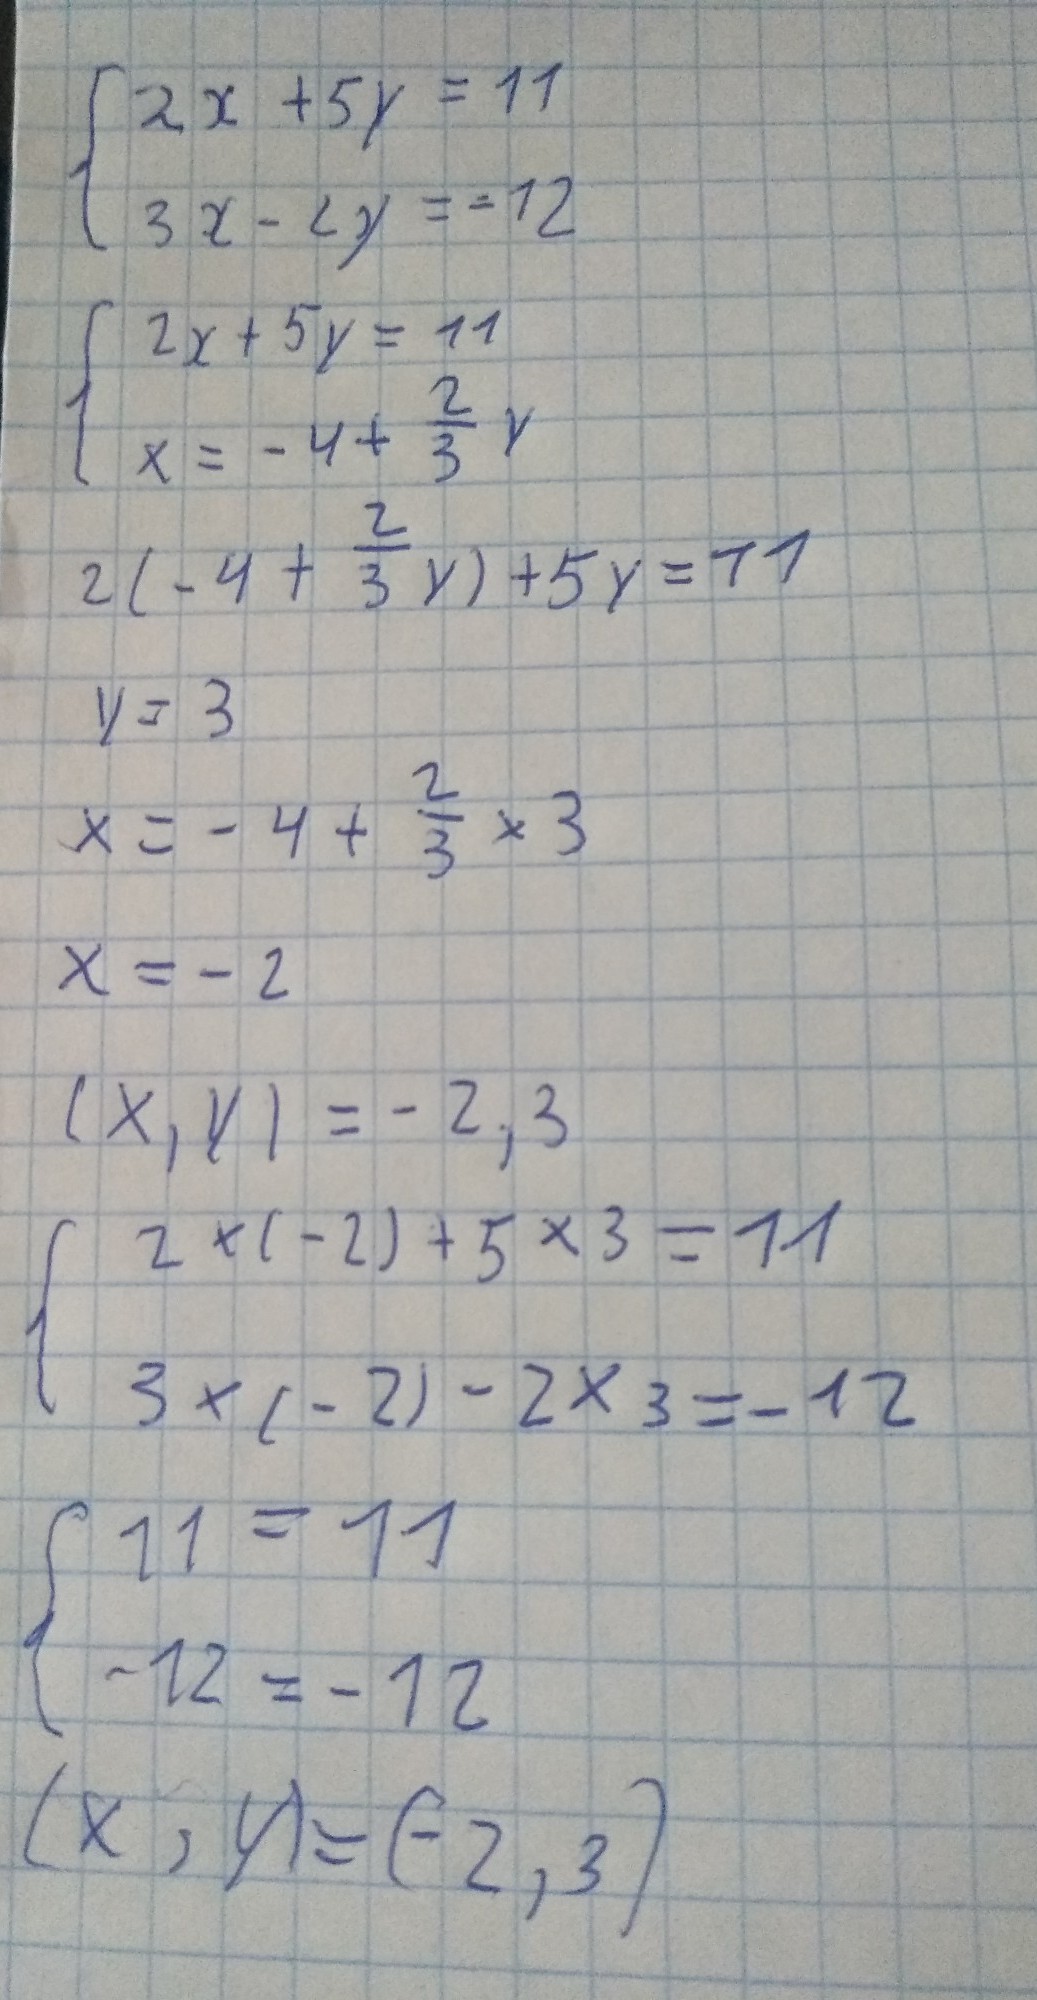 2x + 5y = 11
3x - 2y = -12
2x + 5y = 11
x = -4 + 2/3 y
2(-4 + 2/3 y) + 5y = 11
y = 3
x = -4 + 2/3 × 3
x = -2
(x, y) = -2, 3
2 × (-2) + 5 × 3 = 11
3 × (-2) - 2 × 3 = -12
11 = 11
-12 = -12
(x, y) = (-2, 3)